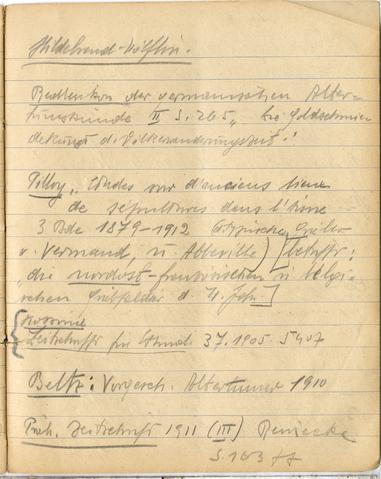 Hildebrand-Wölfflin.
Reallexikon der germanischen Alter-
tumskunde II S. 265 „ die Goldschmie
dekunst d. Völkerwanderungszeit"
Pilloy „ Etudes sur d'anciens lieux
de sépultures dans l'Aisne
3 Bde 1879-1912 (typische Gräber
v. Vermand, u. Abbeville) [betrifft:
„die nordost-französischen u. belgi-
schen Grabfelder d. 4. Jhh]
Zeitschrift für Ethnol. 37. 1905 S 907
Beltz: Vorgesch. Altertümer 1910
Präh. Zeitschrift 1911 (III) Reinecke
S. 163 ff